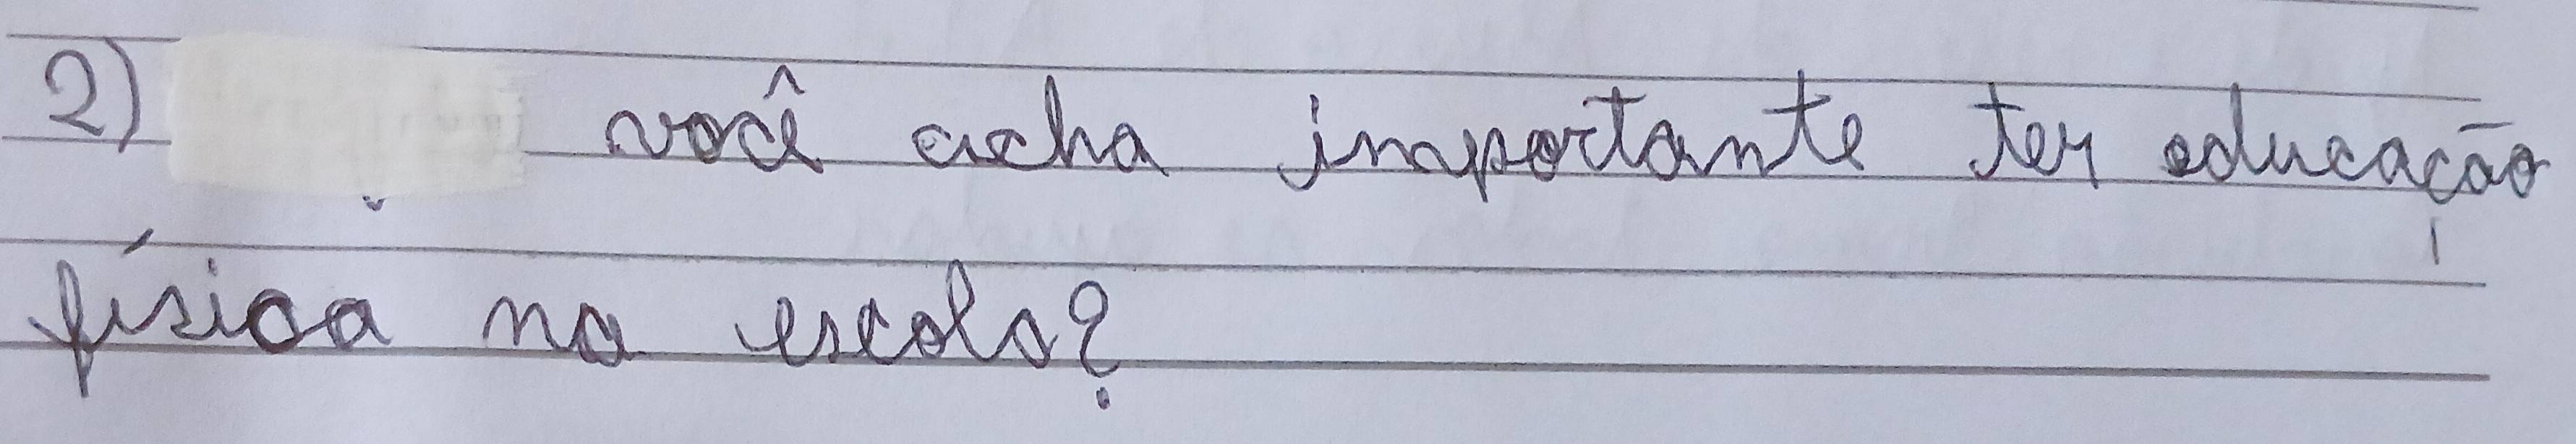 2) você acha importante ter educação
física na escola?